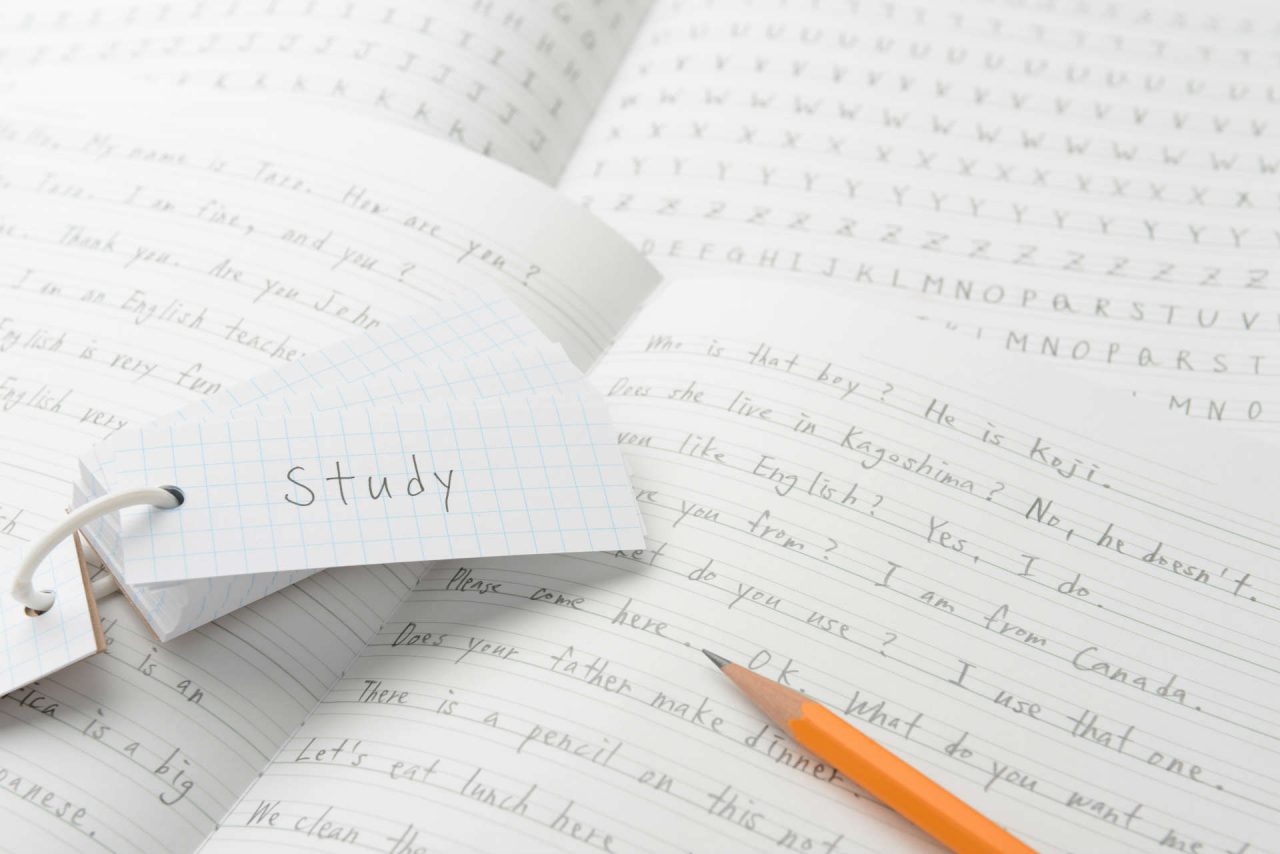 I I I I I I I
J J J J J J J J J
K K K K K K K K
T T T T T T T
U U U U U U U U U U U
V V V V V V V V V V V V
W W W W W W W W W W W
X X X X X X X X X X X X X
Y Y Y Y Y Y Y Y Y Y Y Y
Z Z Z Z Z Z Z Z Z Z Z
D E F G H I J K L M N O P Q R S T U V
M N O P Q R S T
M N O
My name is Taro. How are you?
Taro. I am fine, and you?
Thank you. Are you John
I am an English teacher
English is very fun
English very
Study
is an
rica is a big
panese.
Who is that boy? He is Koji.
Does she live in Kagoshima? No, he doesn't.
you like English? Yes, I do.
re you from? I am from Canada.
ket do you use? I use that one.
Please come here. OK. What do you want me t
Does your father make dinner.
There is a pencil on this not
Let's eat lunch here
We clean the